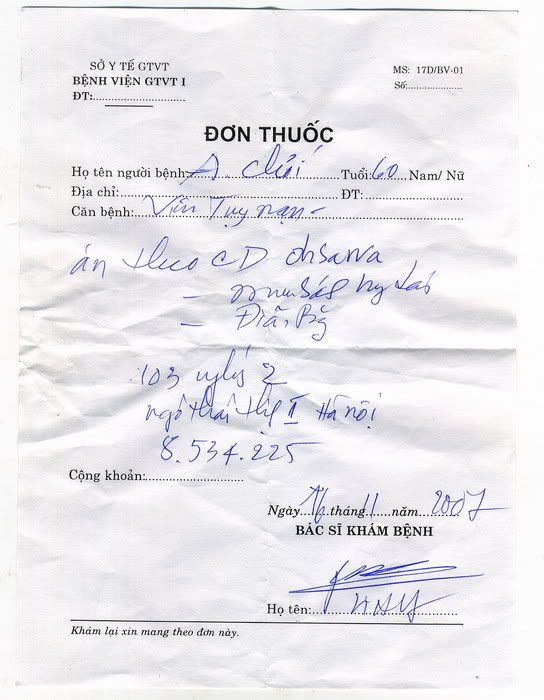 SỞ Y TẾ GTVT
BỆNH VIỆN GTVT I
ĐT:........................
MS: 17D/BV-01
Số:....................
ĐƠN THUỐC
Họ tên người bệnh: A. Tuổi: 60 Nam/ Nữ
Địa chỉ: ĐT:
Căn bệnh: Viêm Tụy mạn -
ăn theo CD ohsawa
-
-
103 2
ngõ thái thịnh II Hà nội
8.534.225
Cộng khoản:........................
Ngày 16 tháng 11 năm 2007
BÁC SĨ KHÁM BỆNH
Họ tên:
Khám lại xin mang theo đơn này.